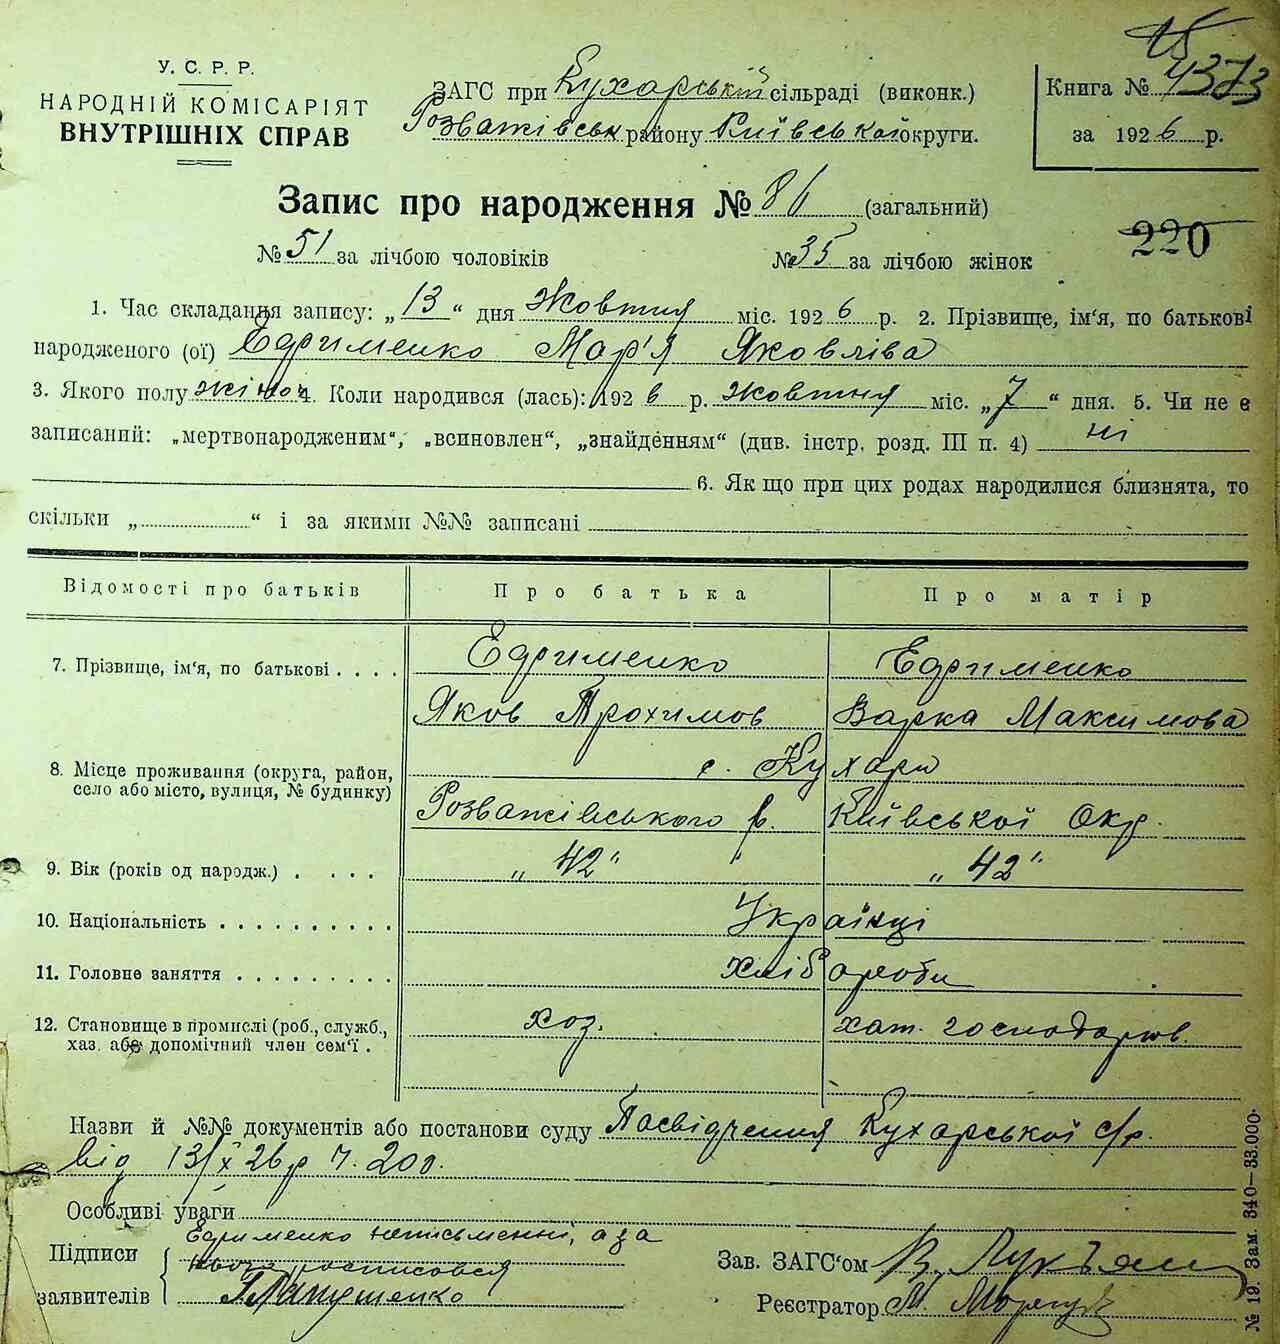 15
У. С. Р. Р.
НАРОДНІЙ КОМІСАРІЯТ
ВНУТРІШНІХ СПРАВ
ЗАГС при Кухарській сільраді (виконк.)
Розважівськ району Київської округи.
Книга № 4373
за 1926 р.
Запис про народження № 86 (загальний)
№ 51 за лічбою чоловіків № 35 за лічбою жінок
220
1. Час складання запису: „13“ дня Жовтня міс. 1926 р. 2. Прізвище, ім‘я, по батькові
народженого (ої) Ефрименко Мар'я Яковліва
3. Якого полу жіноч 4. Коли народився (лась): 1926 р. жовтня міс. „7“ дня. 5. Чи не є
записаний: „мертвонародженим“, „всиновлен“, „знайденням“ (див. інстр. розд. III п. 4) ні
6. Як що при цих родах народилися близнята, то
скільки „ “ і за якими №№ записані
Відомості про батьків Про батька Про матір
7. Прізвище, ім‘я, по батькові . . . . Ефрименко Ефрименко
Яков Трохимов Варка Максимова
8. Місце проживання (округа, район, с. Кухари
село або місто, вулиця, № будинку) Розважівського р. Київської Окр.
9. Вік (років од народж.) . . . . „42“ „42“
10. Національність . . . . . . . . . . Українці
11. Головне заняття . . . . . . . . . хлібороби
12. Становище в промислі (роб., служб., хоз. хат. господарюв.
хаз. або допомічний член сем‘ї .
Назви й №№ документів або постанови суду Посвідчення Кухарської с/р.
від 13/X 26 р ч. 200.
Особливі уваги
Підписи Ефрименко неписьменні, а за
нього росписовся
заявителів
Зав. ЗАГС‘ом В. Лукъян
Реєстратор М.
№ 19. Зам. 340—33.000.